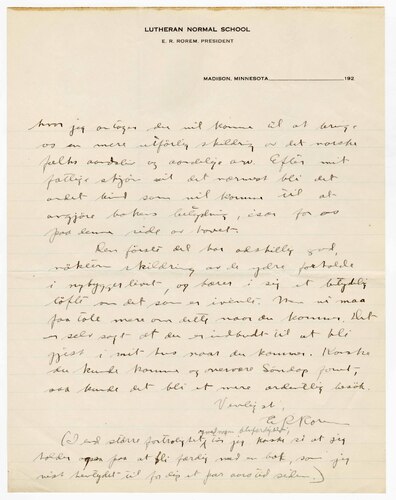 LUTHERAN NORMAL SCHOOL
E. R. ROREM, PRESIDENT
MADISON, MINNESOTA 192
hvor jeg antager du vil komme til at bringe
os en mere utførlig skildring av det norske
folks aandsliv og aandelige arv. Efter mit
fattige skjøn vil det nærmest bli det
andet bind som vil komme til at
avgjøre bokens betydning, især for os
paa denne side av havet.
Den første del har adskillig god,
nøktern skildring av de ydre forholde
i nybyggerlivet, og bærer i sig et
løfte om det som er ivente. Men vi maa
faa tale mere om dette naar du kommer. Det
er selvsagt at du er indbudt til at bli
gjest i mit hus naar du kommer. Kanske
du kunde komme og overvære Søndag
saa kunde det bli et mere ordentlig besøk.
Venligst,
E R Rorem
(I end større fortrolighet, jeg kanske si at jeg
holder paa at bli færdig med en bok, som jeg
vist hentydet til for dig et par aar siden.)